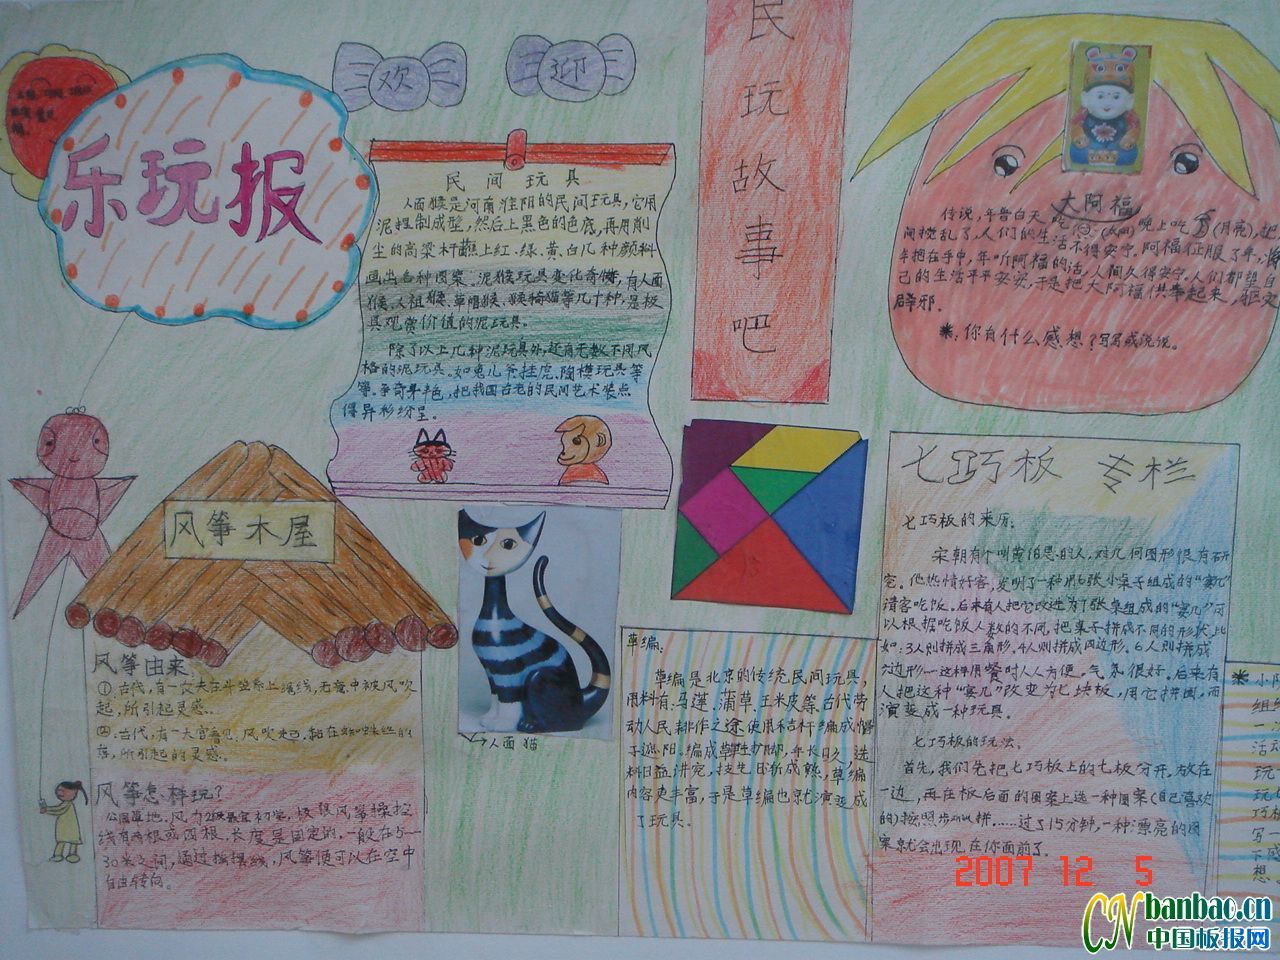 乐玩报
欢迎
民间玩具
人面猴是河南淮阳的民间玩具,它用
泥捏制成型,然后上黑色的色底,再用削
尘的高梁杆蘸上红、绿、黄、白几种颜料
画出各种图案。泥猴玩具变化奇特,有人面
猴、人祖猴、草帽猴、猴骑猫等几十种,是极
具观赏价值的泥玩具。
除了以上几种泥玩具外,还有无数不同风
格的泥玩具。如兔儿爷、挂虎、陶模玩具等
等。争奇斗色,把我国古老的民间艺术装点
得异彩纷呈。
民玩故事吧
大阿福
传说,年兽白天吃
晚上吃
(月亮),把
间搅乱了,人们的生活不得安宁。阿福征服了年,将
年把在手中,年听阿福的话,人间久得安宁。人们都望自
己的生活平平安安,于是把大阿福供奉起来,驱灾
辟邪。
*:你有什么感想?写写或说说。
风筝木屋
风筝由来
①古代,有一
夫在斗
上
线,无意中被风吹
起,所引起灵感。
②古代,有一大官看见,风吹走
,粘在蜘蛛丝上的
落,所引起的灵感。
风筝怎样玩?
公园草地,风力2级最宜初学。
风筝操控
线有两根或四根,长度是固定的,一般在5——
30米之间,通过操操线,风筝便可以在空中
自由转向。
人面猫
草编:
草编是北京的传统民间玩具,
用料有:马莲、蒲草、玉米皮等。古代劳
动人民耕作之途使用秸杆编成帽
子遮阳。编成草鞋护脚,年长日久,选
料日益讲究,技生日渐成熟,草编
内容更丰富,于是草编也就演变成
了玩具。
七巧板 专栏
七巧板的来历:
宋朝有个叫黄伯思的人,对几何图形很有研
究。他热情好客,发明了一种用6张小桌子组成的“宴几”
请客吃饭。后来有人把它改进为7张桌组成的“宴几”可
以根据吃饭人数的不同,把桌子拼成不同的形状,比
如:3人则拼成三角形。4人则拼成四边形。6人则拼成
六边形…这样用餐时人人方便,气氛很好。后来有
人把这种“宴几”改变为七块板,用它拼图,而
演变成一种玩具。
七巧板的玩法。
首先,我们先把七巧板上的七板分开,放在
一边,再在板后面的图案上选一种图案(自己喜欢
的)按照步
拼……过了15分钟,一种漂亮的图
案就会出现在你面前了。
* 小
组
一
活动
玩
玩
巧
写一
下感
想。
2007 12 5
CN banbao.cn
中国板报网